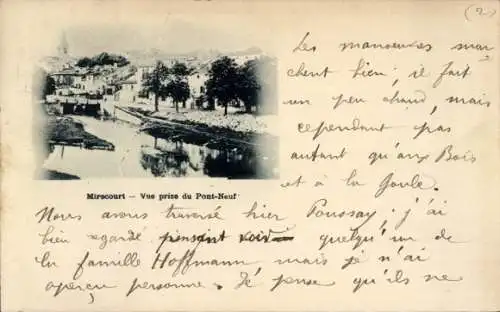 (2)
Les manoeuvres mar
chent bien; il fait
un peu chaud, mais
cependant pas
autant qu'aux Bois
et à la Gaule.
Mirecourt — Vue prise du Pont-Neuf
Nous avons traversé hier Poussay; j'ai
bien regardé pensant voir quelqu'un de
la famille Hoffmann mais je n'ai
aperçu personne. Je pense qu'ils ne